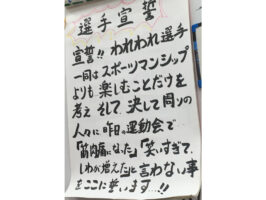 選手宣誓
宣誓!! われわれ選手
一同はスポーツマンシップ
よりも楽しむことだけを
考え そして、決して周りの
人々に昨日の運動会で
「筋肉痛になった」「笑いすぎて
しわが増えた」と言わない事
をここに誓います…!!